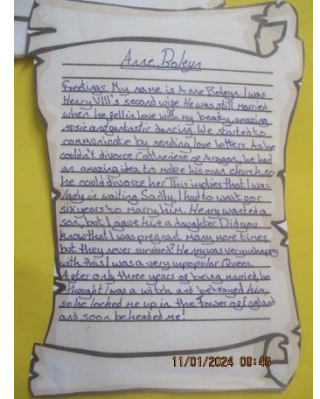 Anne Boleyn
Greetings. My name is Anne Boleyn I was
Henry VIII's second wife. He was still married
when he fell in love with my beauty, amazing
music and fantastic dancing. We started to
communicate by sending love letters. As he
couldn't divorce Catherine of Aragon, he had
an amazing idea to make his own church, so
he could divorce her. This implies that I was
lady in waiting. Sadly, I had to wait for
six years to marry him. Henry wanted a
son, but I gave him a daughter. Did you
know that I was pregnant many more times
but they never survived? Henry was very unhappy
with this. I was a very unpopular Queen
After only three years of being married, he
thought I was a witch and betrayed him
so he locked me up in the Tower of England
and soon beheaded me!
11/01/2024 08:46